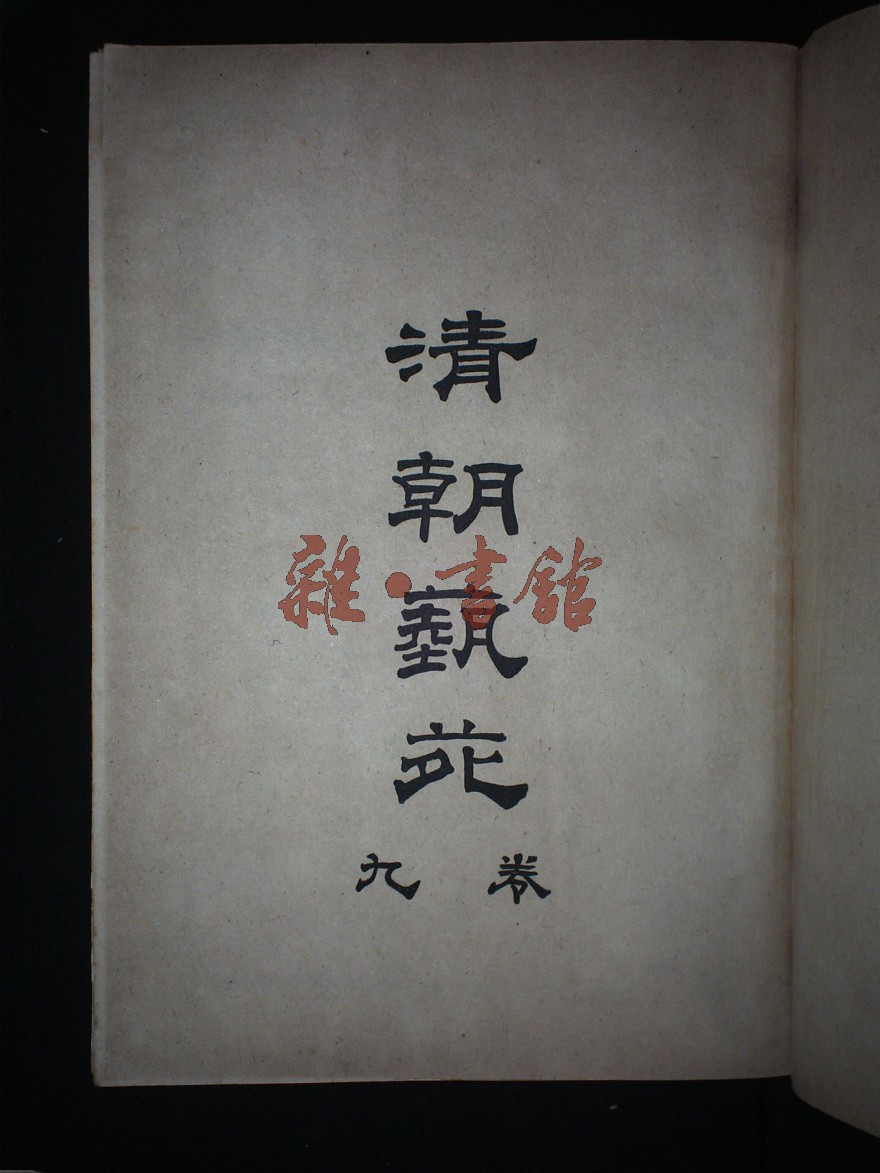 清朝藝苑
卷九
雜·書館